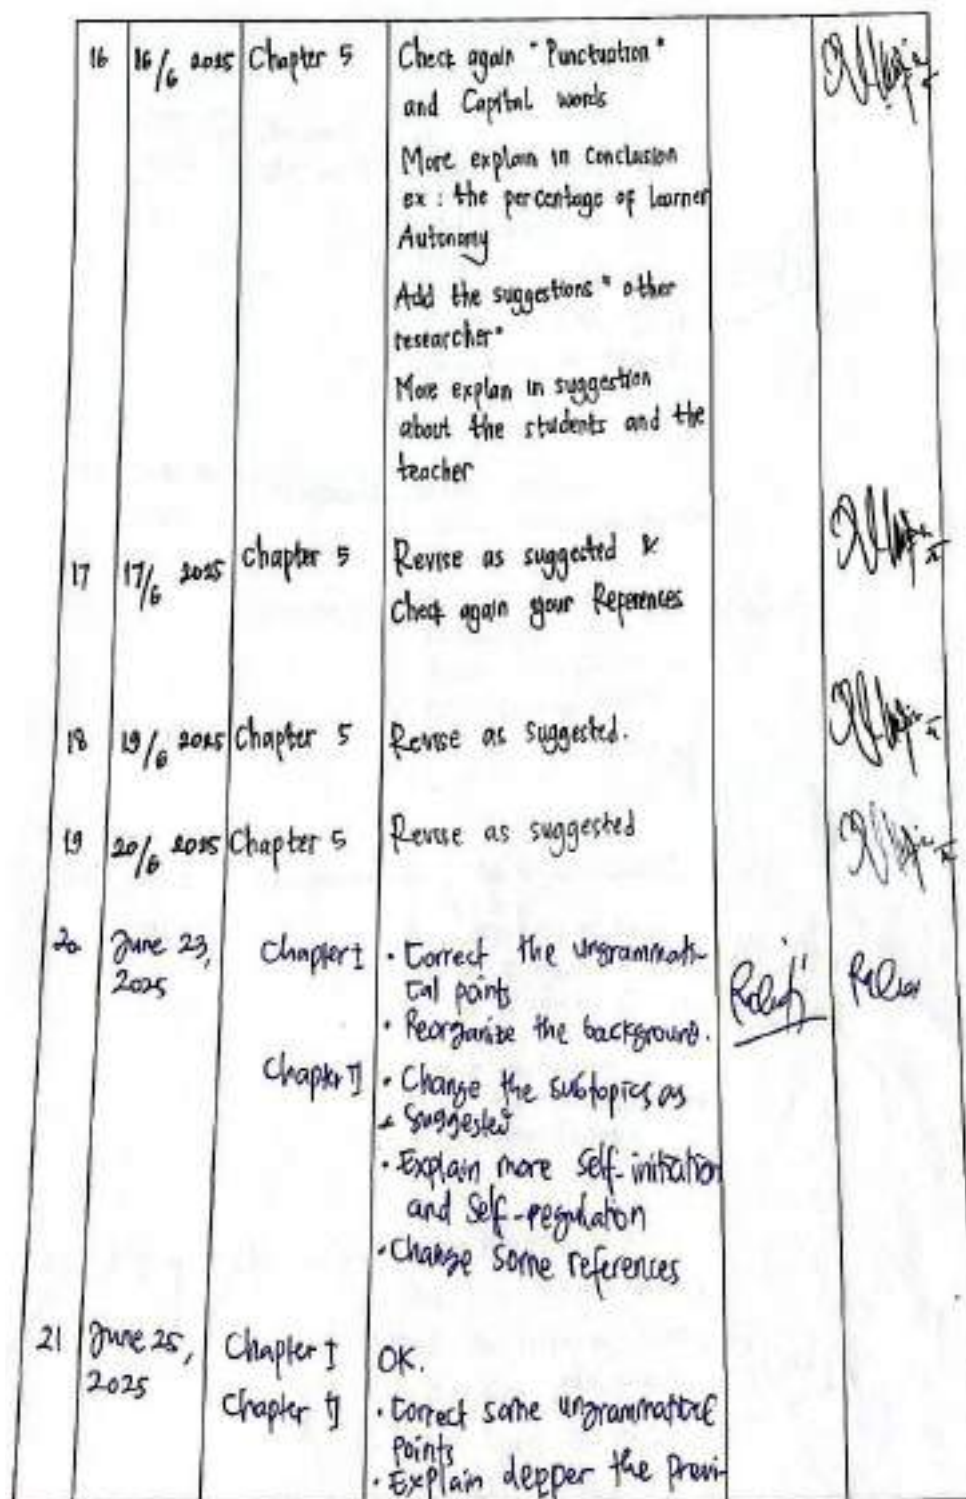 16 16/6 2025 Chapter 5 Check again "Punctuation"
and Capital words
More explain in Conclusion
ex : the percentage of Learner
Autonomy
Add the suggestions " other
researcher"
More explan in suggestion
about the students and the
teacher
17 17/6 2025 Chapter 5 Revise as suggested &
Check again your References
18 19/6 2025 Chapter 5 Revise as suggested.
19 20/6 2025 Chapter 5 Revise as suggested
20 June 23, 2025 Chapter I • Correct the ungrammati-
cal points
• Reorganize the background.
Chapter II • Change the subtopics as
suggested
• Explain more self-initiation
and self-regulation
• Change some references
21 June 25, 2025 Chapter I OK.
Chapter II • Correct some ungrammatical
points
• Explain depper the previ-